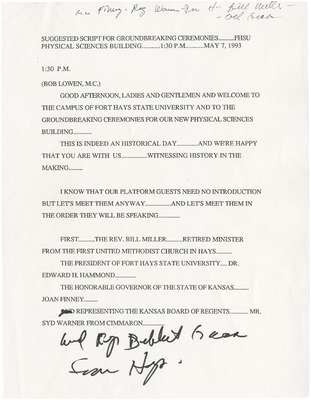 Finney - Rog Warner
Bill Miller -
SUGGESTED SCRIPT FOR GROUNDBREAKING CEREMONIES......FHSU
PHYSICAL SCIENCES BUILDING..........1:30 P.M...........MAY 7, 1993
1:30 P.M.
(BOB LOWEN, M.C.)
GOOD AFTERNOON, LADIES AND GENTLEMEN AND WELCOME TO
THE CAMPUS OF FORT HAYS STATE UNIVERSITY AND TO THE
GROUNDBREAKING CEREMONIES FOR OUR NEW PHYSICAL SCIENCES
BUILDING...........
THIS IS INDEED AN HISTORICAL DAY...........AND WE'RE HAPPY
THAT YOU ARE WITH US..............WITNESSING HISTORY IN THE
MAKING........
I KNOW THAT OUR PLATFORM GUESTS NEED NO INTRODUCTION
BUT LET'S MEET THEM ANYWAY.............AND LET'S MEET THEM IN
THE ORDER THEY WILL BE SPEAKING............
FIRST........THE REV. BILL MILLER.........RETIRED MINISTER
FROM THE FIRST UNITED METHODIST CHURCH IN HAYS......
THE PRESIDENT OF FORT HAYS STATE UNIVERSITY..... DR.
EDWARD H. HAMMOND...........
THE HONORABLE GOVERNOR OF THE STATE OF KANSAS.........
JOAN FINNEY.......
REPRESENTING THE KANSAS BOARD OF REGENTS........ MR.
SYD WARNER FROM CIMMARON........
and Rep
from Hays.